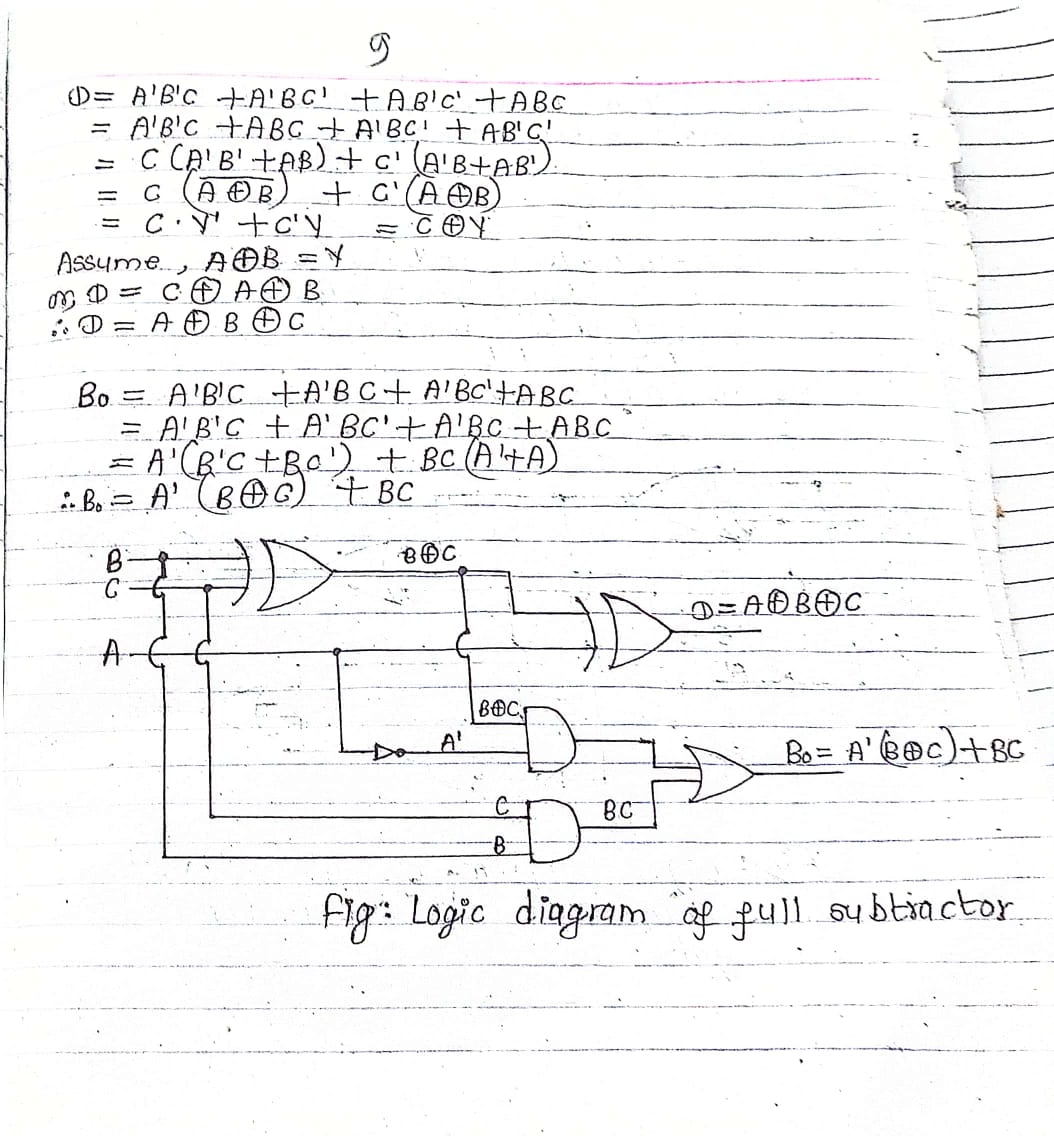 9
D = A'B'C + A'BC' + AB'C' + ABC
= A'B'C + ABC + A'BC' + AB'C'
= C (A'B' + AB) + C' (A'B + AB')
= C (A̅ ̅⊕̅ ̅B̅) + C' (A ⊕ B)
= C · Y' + C'Y = C ⊕ Y
Assume, A ⊕ B = Y
or, D = C ⊕ A ⊕ B
∴ D = A ⊕ B ⊕ C
Bo = A'B'C + A'BC + A'BC' + ABC
= A'B'C + A'BC' + A'BC + ABC
= A' (B'C + BC') + BC (A' + A)
∴ Bo = A' (B ⊕ C) + BC
B
C
B⊕C
D = A ⊕ B ⊕ C
A
B⊕C
A'
Bo = A' (B⊕C) + BC
C
BC
B
Fig: Logic diagram of full subtractor